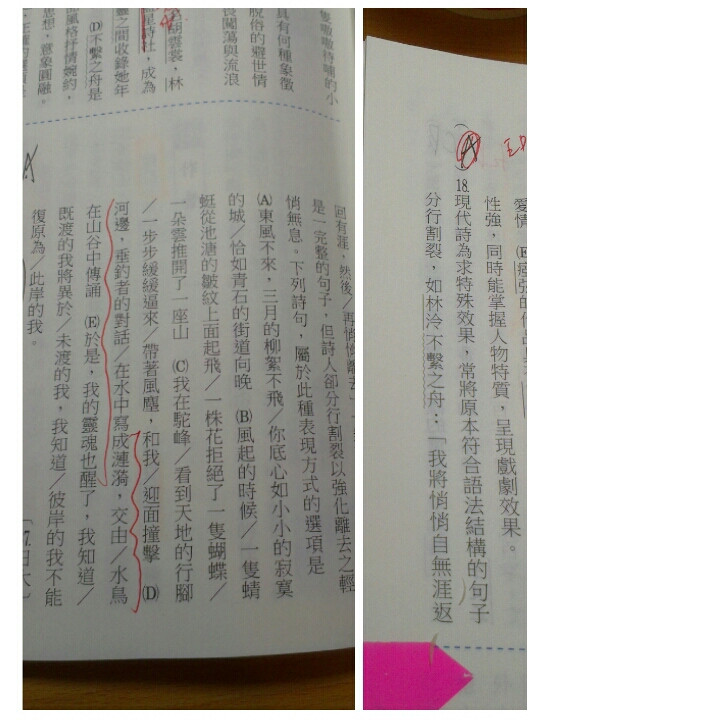 愛情 (E)
性強，同時能掌握人物特質，呈現戲劇效果。
A
18.現代詩為求特殊效果，常將原本符合語法結構的句子
分行割裂，如林泠不繫之舟：「我將悄悄自無涯返
隻嗷嗷待哺的小
具有何種象徵
脫俗的避世情
闖蕩與流浪
胡雲裳，林
詩社，成為
靈之間收錄她年
(D)不繫之舟是
風格抒情婉約，
思想，意象圓融。
回有涯，然後／再悄悄離去」
是一完整的句子，但詩人卻分行割裂以強化離去之輕
悄無息。下列詩句，屬於此種表現方式的選項是
(A)東風不來，三月的柳絮不飛／你底心如小小的寂寞
的城／恰如青石的街道向晚 (B)風起的時候／一隻蜻
蜓從池溏的皺紋上面起飛／一株花拒絕了一隻蝴蝶／
一朵雲推開了一座山 (C)我在駝峰／看到天地的行腳
／一步步緩緩逼來／帶著風塵，和我／迎面撞擊 (D)
河邊，垂釣者的對話／在水中寫成漣漪，交由／水鳥
在山谷中傳誦 (E)於是，我的靈魂也醒了，我知道／
既渡的我將異於／未渡的我，我知道／彼岸的我不能
復原為／此岸的我。
A